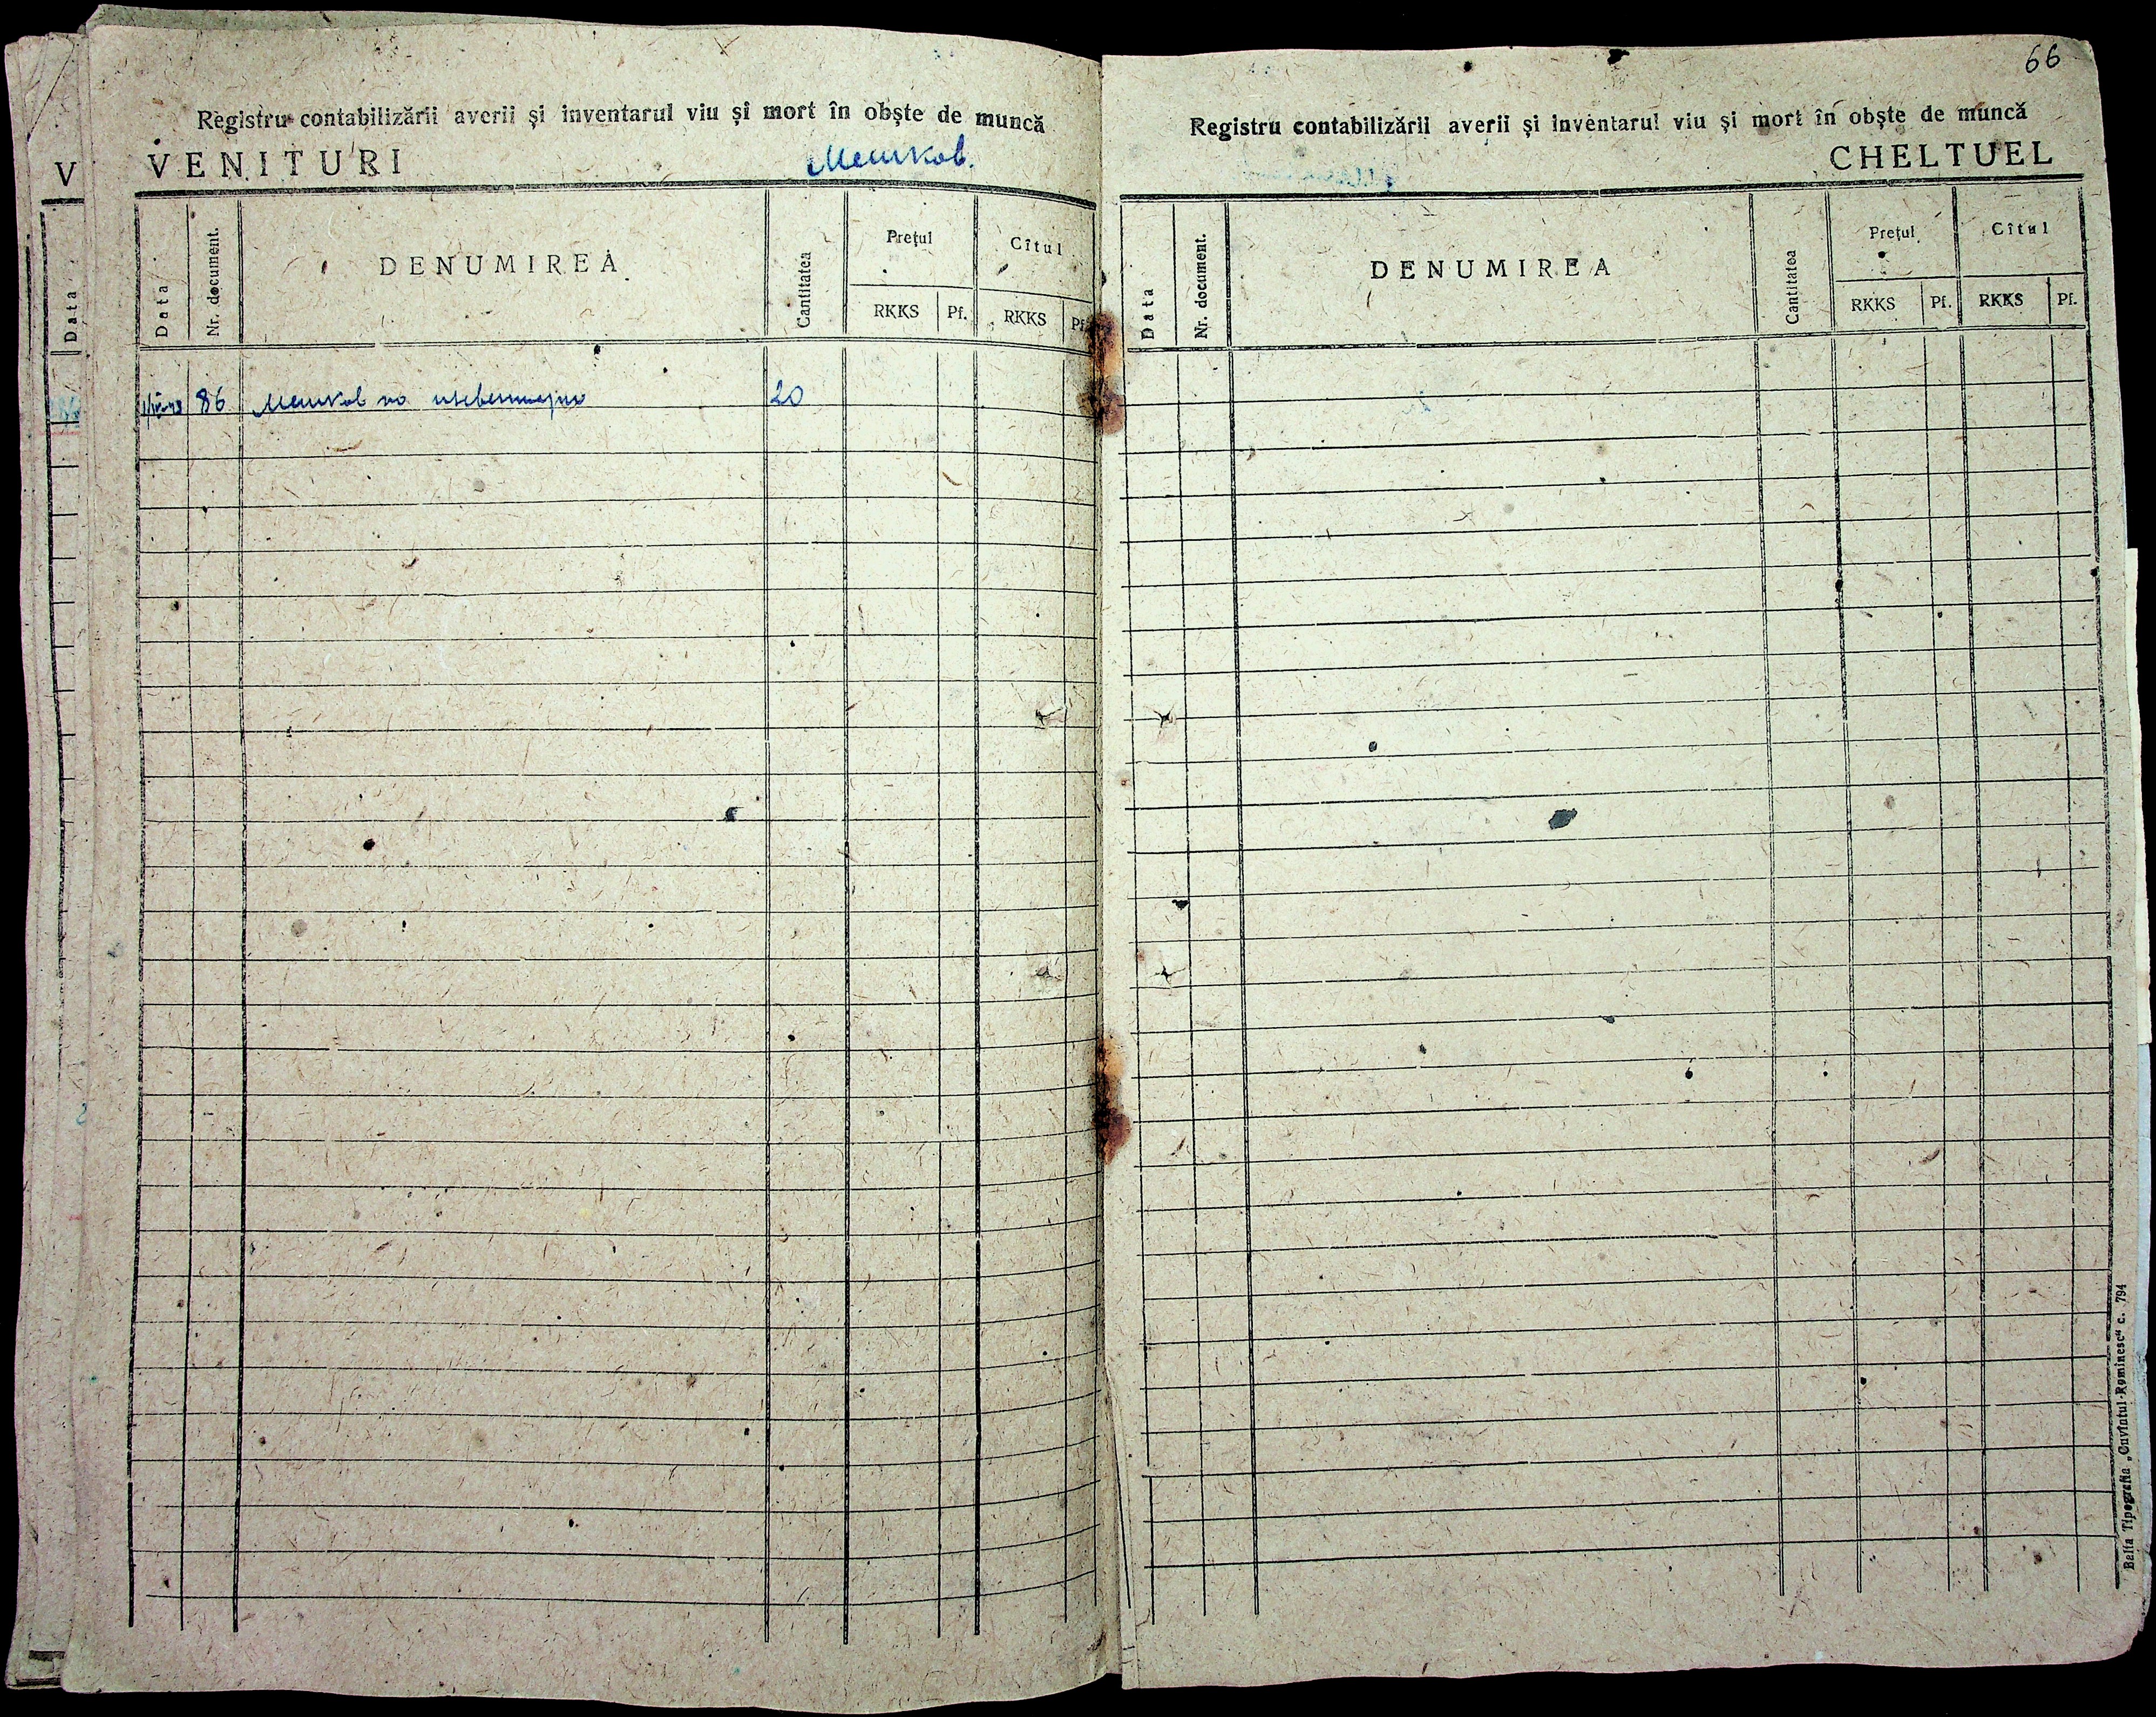 66
Registru contabilizării averii și inventarul viu și mort în obște de muncă
VENITURI
Мешков.
Data
Nr. document.
DENUMIREA
Cantitatea
Prețul
Cîtul
RKKS
Pf.
RKKS
Pf.
86 Мешков по 20
Registru contabilizării averii și inventarul viu și mort în obște de muncă
CHELTUEL
Data
Nr. document.
DENUMIREA
Cantitatea
Prețul
Cîtul
RKKS
Pf.
RKKS
Pf.
Balta Tipografia „Cuvîntul Rominesc“ c. 794
V
Data